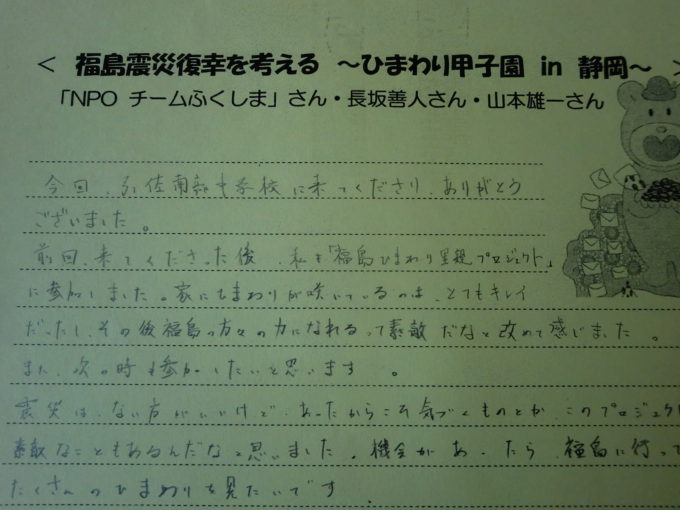 < 福島震災復幸を考える ～ひまわり甲子園 in 静岡～ >
「NPO チームふくしま」さん・長坂善人さん・山本雄一さん
今回、引佐南部中学校に来てくださり、ありがとう
ございました。
前回、来てくださった後、私も「福島ひまわり里親プロジェクト」
に参加しました。家にひまわりが咲いているのは、とてもキレイ
だったし、その後福島の方々の力になれるって素敵だなと改めて感じました。
また、次の時も参加したいと思います。
震災は、ない方がいいけど、あったからこそ気づくものとか、このプロジェクト
素敵なこともあるんだなと思いました。機会があったら、福島に行って
たくさんのひまわりを見たいです。